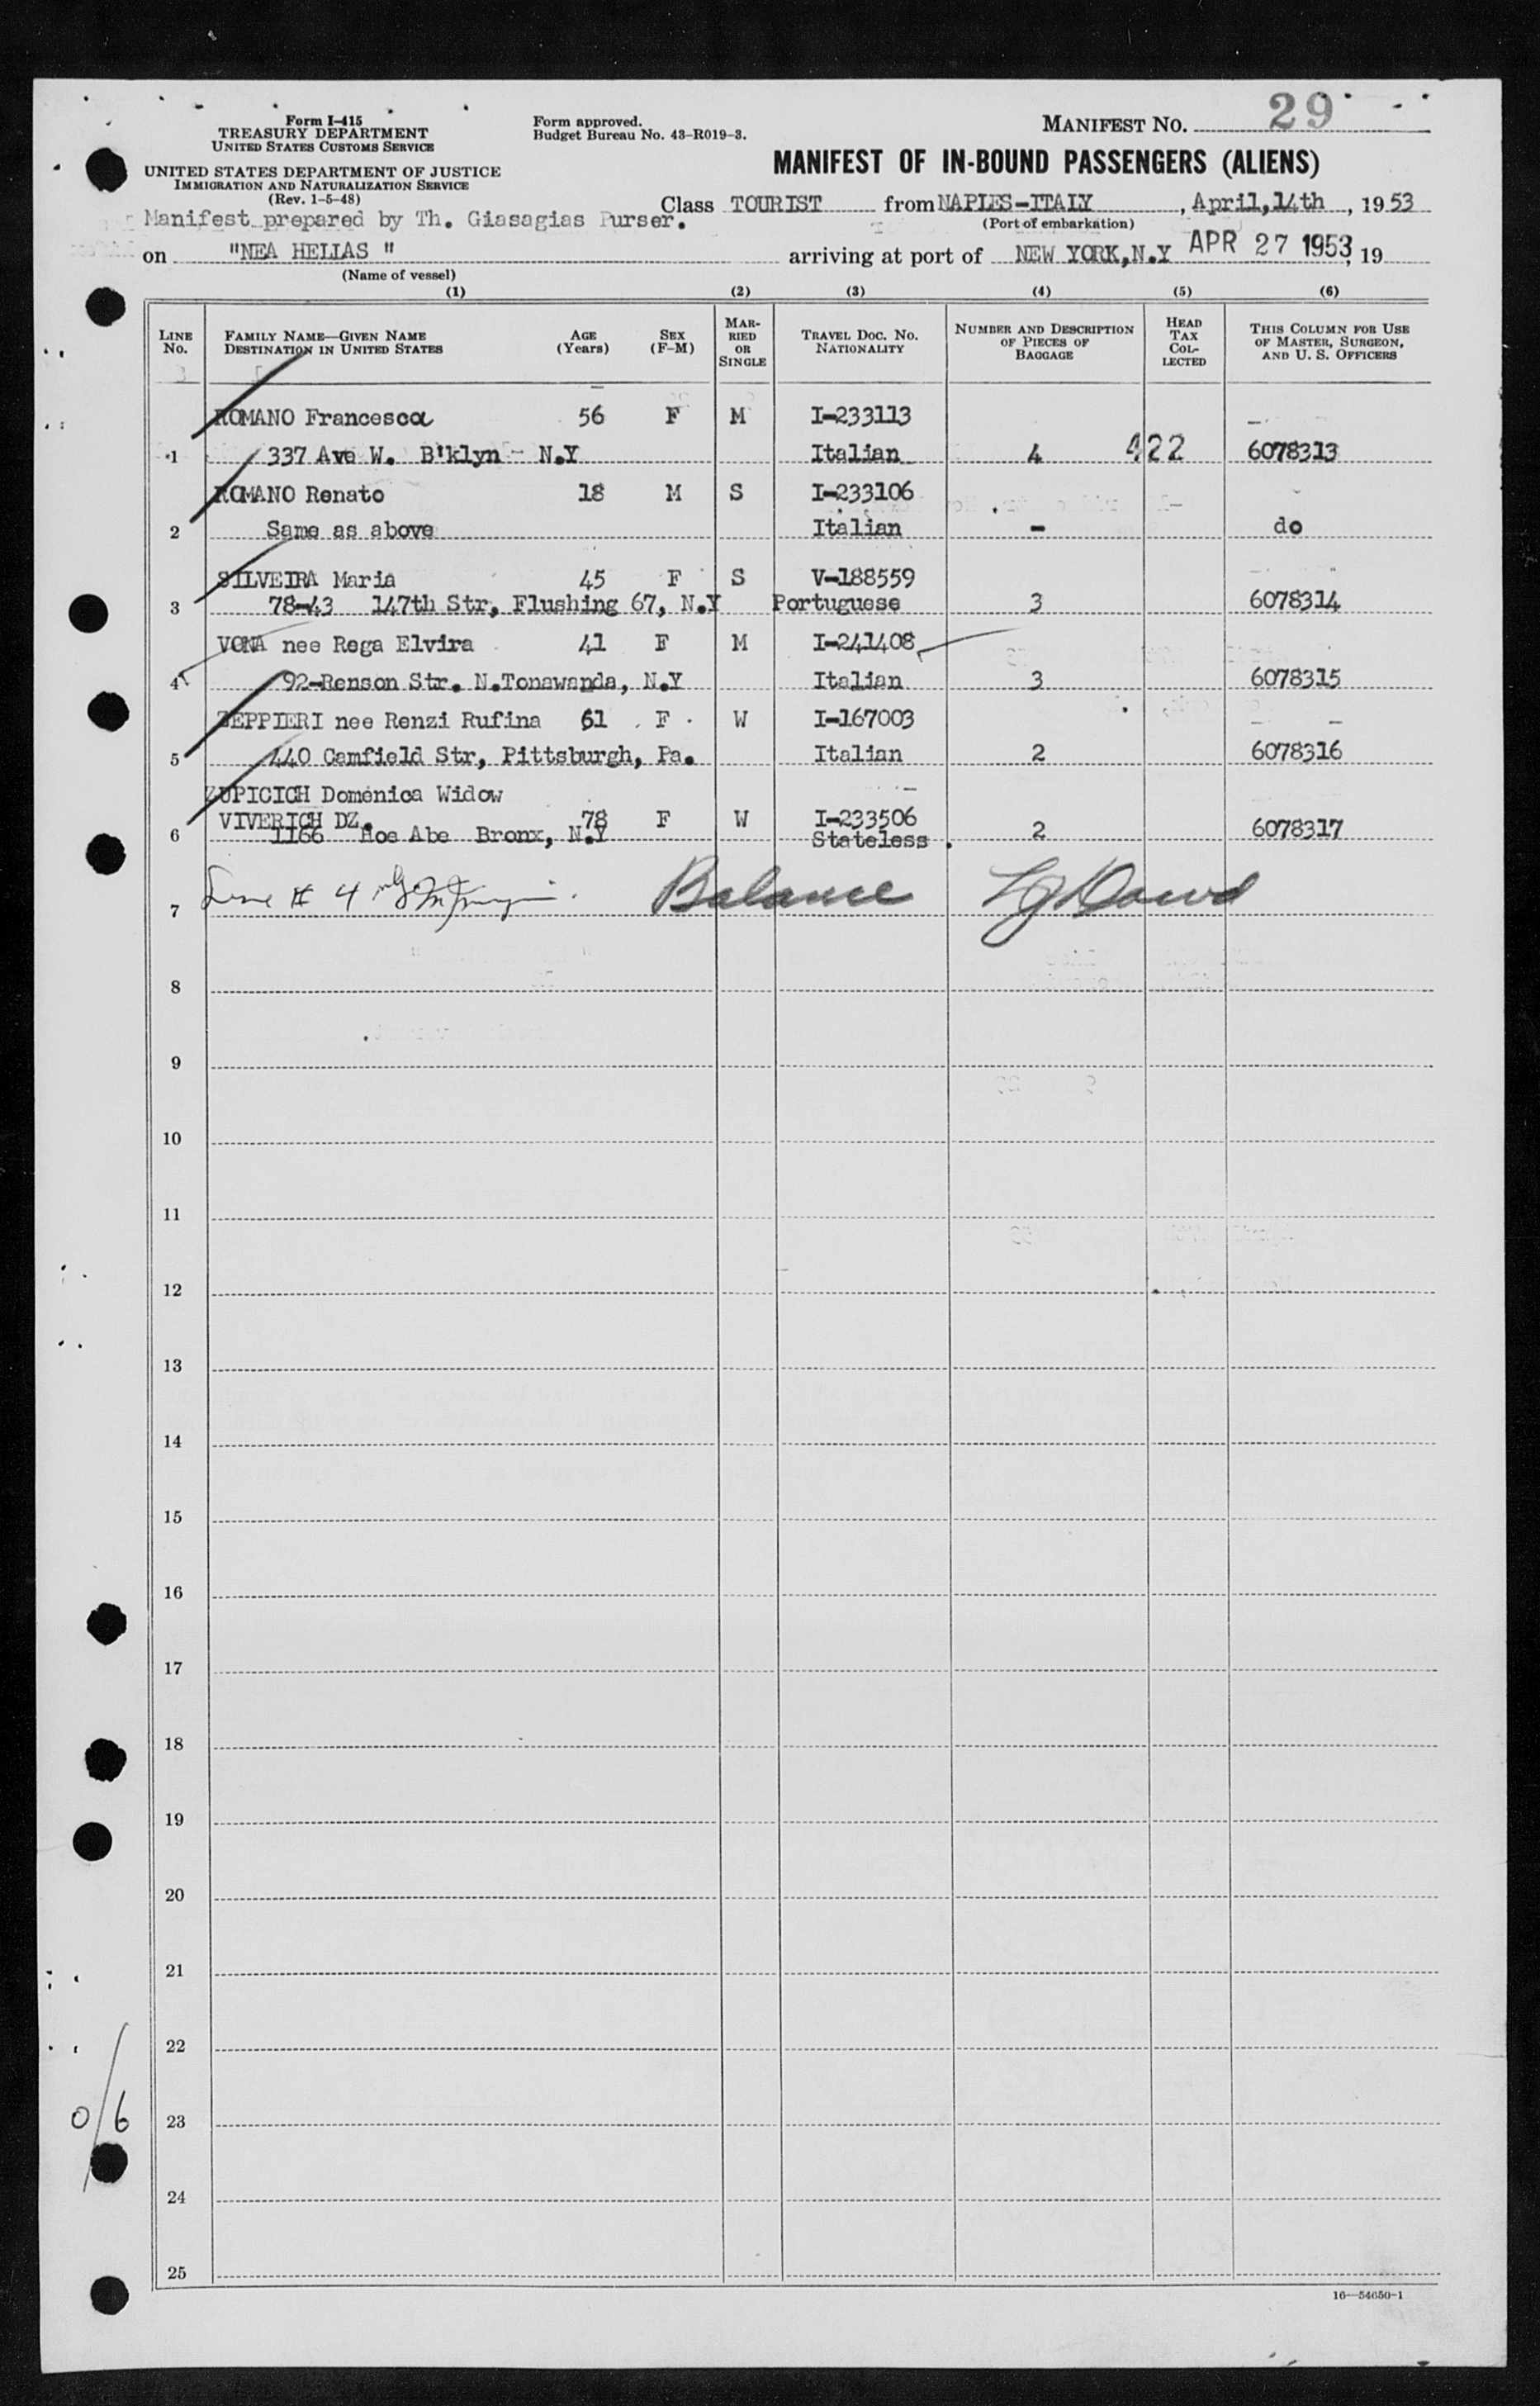 Form I-415
TREASURY DEPARTMENT
UNITED STATES CUSTOMS SERVICE
UNITED STATES DEPARTMENT OF JUSTICE
IMMIGRATION AND NATURALIZATION SERVICE
(Rev. 1-5-48)
Form approved.
Budget Bureau No. 43-R019-3.
MANIFEST NO. 29
MANIFEST OF IN-BOUND PASSENGERS (ALIENS)
Class TOURIST from NAPLES-ITALY, April,14th, 1953
(Port of embarkation)
Manifest prepared by Th. Giasagias Purser.
on "NEA HELLAS " arriving at port of NEW YORK,N.Y APR 27 1953, 19
(Name of vessel)
(1) (2) (3) (4) (5) (6)
LINE No. FAMILY NAME—GIVEN NAME DESTINATION IN UNITED STATES AGE (Years) SEX (F-M) MARRIED OR SINGLE TRAVEL DOC. NO. NATIONALITY NUMBER AND DESCRIPTION OF PIECES OF BAGGAGE HEAD TAX COLLECTED THIS COLUMN FOR USE OF MASTER, SURGEON, AND U. S. OFFICERS
ROMANO Francesca 56 F M I-233113
1 337 Ave W. B'klyn - N.Y Italian 4 422 6078313
ROMANO Renato 18 M S I-233106
2 Same as above Italian - do
SILVEIRA Maria 45 F S V-188559
3 78-43 147th Str, Flushing 67, N.Y Portuguese 3 6078314
VONA nee Rega Elvira 41 F M I-241408
4 92-Renson Str. N.Tonawanda, N.Y Italian 3 6078315
ZEPPIERI nee Renzi Rufina 61 F W I-167003
5 440 Camfield Str, Pittsburgh, Pa. Italian 2 6078316
ZUPICICH Domenica Widow
VIVERICH DZ. 78 F W I-233506
6 1166 Hoe Abe Bronx, N.Y Stateless . 2 6078317
7 Line # 4 Balance
8
9
10
11
12
13
14
15
16
17
18
19
20
21
22
0/6 23
24
25
16—54650-1